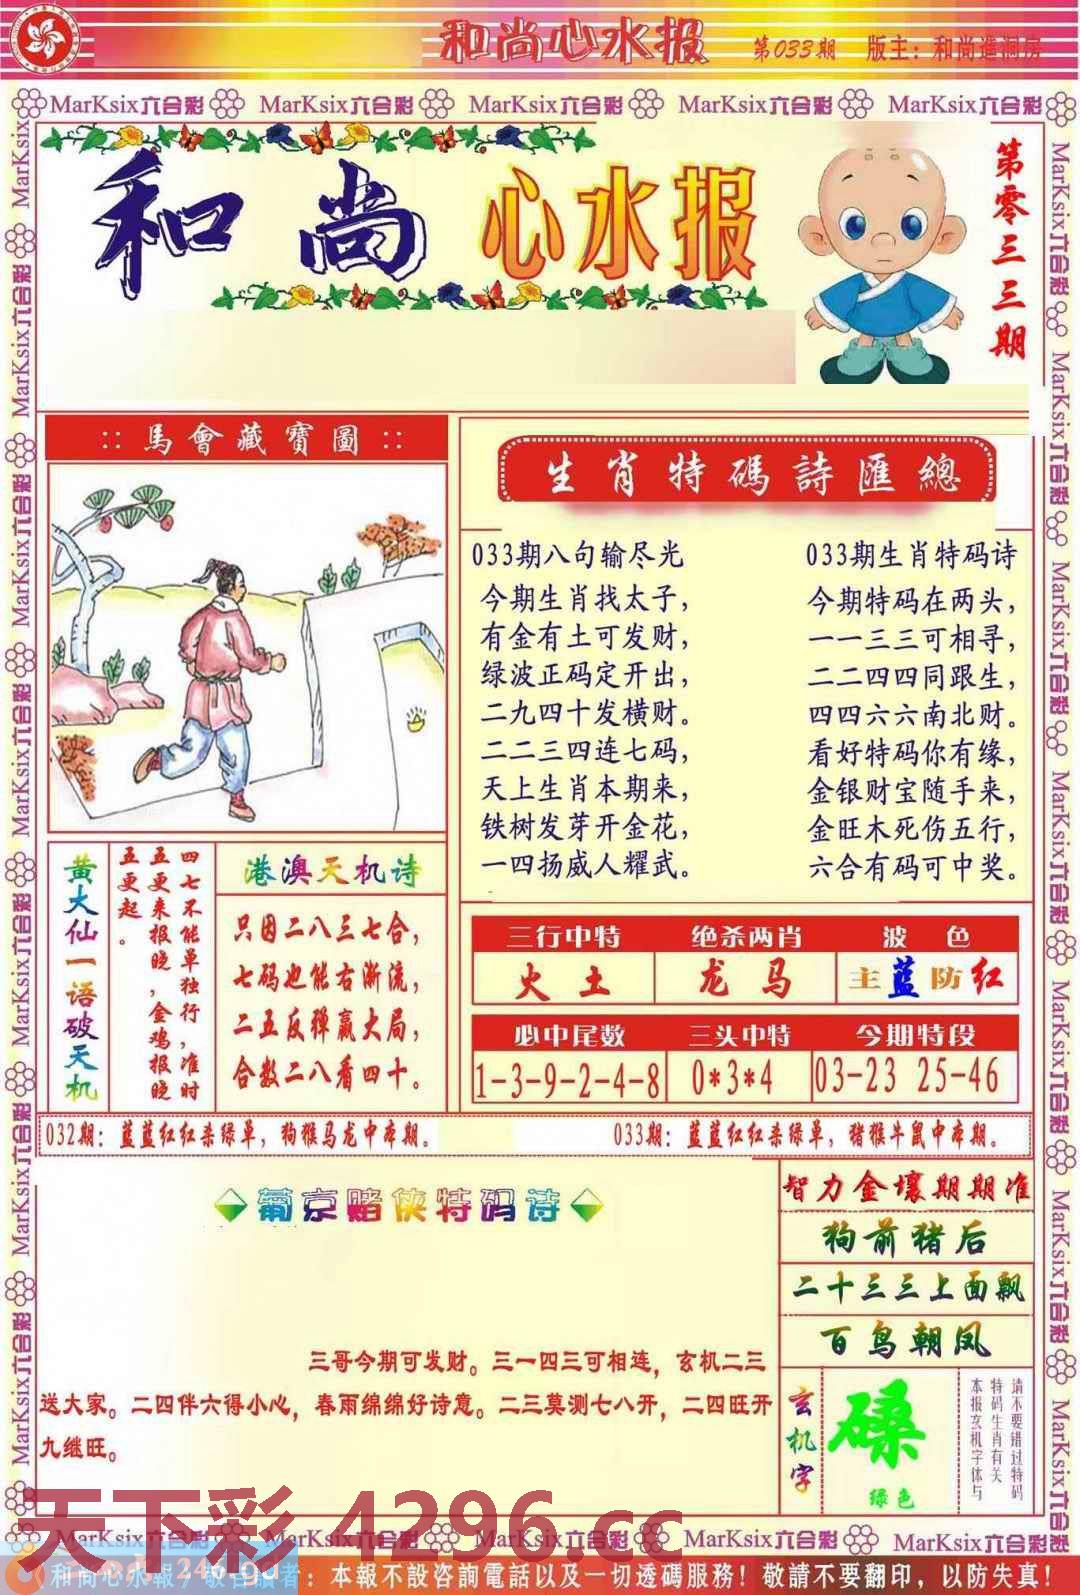 和尚心水报
第033期 版主：和尚進洞房
MarKsix六合彩 MarKsix六合彩 MarKsix六合彩 MarKsix六合彩 MarKsix六合彩
和尚心水报
第零三三期
::馬會藏寶圖::
生肖特碼詩匯總
033期八句输尽光
今期生肖找太子，
有金有土可发财，
绿波正码定开出，
二九四十发横财。
二二三四连七码，
天上生肖本期来，
铁树发芽开金花，
一四扬威人耀武。
033期生肖特码诗
今期特码在两头，
一一三三可相寻，
二二四四同跟生，
四四六六南北财。
看好特码你有缘，
金银财宝随手来，
金旺木死伤五行，
六合有码可中奖。
黄大仙一语破天机
四七不能单独行，准时
五更来报晚，金鸡报晚
五更起。
港澳天机诗
只因二八三七合，
七码也能右渐流，
二五反弹赢大局，
合数二八看四十。
三行中特 绝杀两肖 波色
火土 龙马 主蓝防红
必中尾数 三头中特 今期特段
1-3-9-2-4-8 0*3*4 03-23 25-46
032期：蓝蓝红红杀绿单，狗猴马龙中本期。
033期：蓝蓝红红杀绿单，猪猴牛鼠中本期。
葡京赌侠特码诗
三哥今期可发财。三一四三可相连，玄机二三
送大家。二四伴六得小心，春雨绵绵好诗意。二三莫测七八开，二四旺开
九继旺。
智力金壤期期准
狗前猪后
二十三三上面飘
百鸟朝凤
玄机字
磉
绿色
请不要错过特码
特码生肖有关
本报玄机字体与
天下彩 4296.cc
MarKsix六合彩 MarKsix六合彩 MarKsix六合彩 MarKsix六合彩 MarKsix六合彩
246.gd
和尚心水報，敬告讀者：本報不設咨詢電話以及一切透碼服務！敬請不要翻印，以防失真！